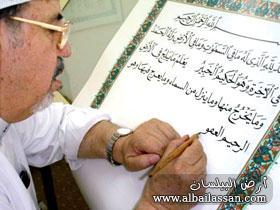 بسم الله الرحمن الرحيم
لله الذي له ما في السموات وما في الأرض وله الحمد
في الآخرة وهو الحكيم الخبير يعلم ما يلج في الأرض
وما يخرج منها وما ينزل من السماء وما يعرج فيها وهو
الرحيم الغفو
أرض البيلسان
www.albailassan.com